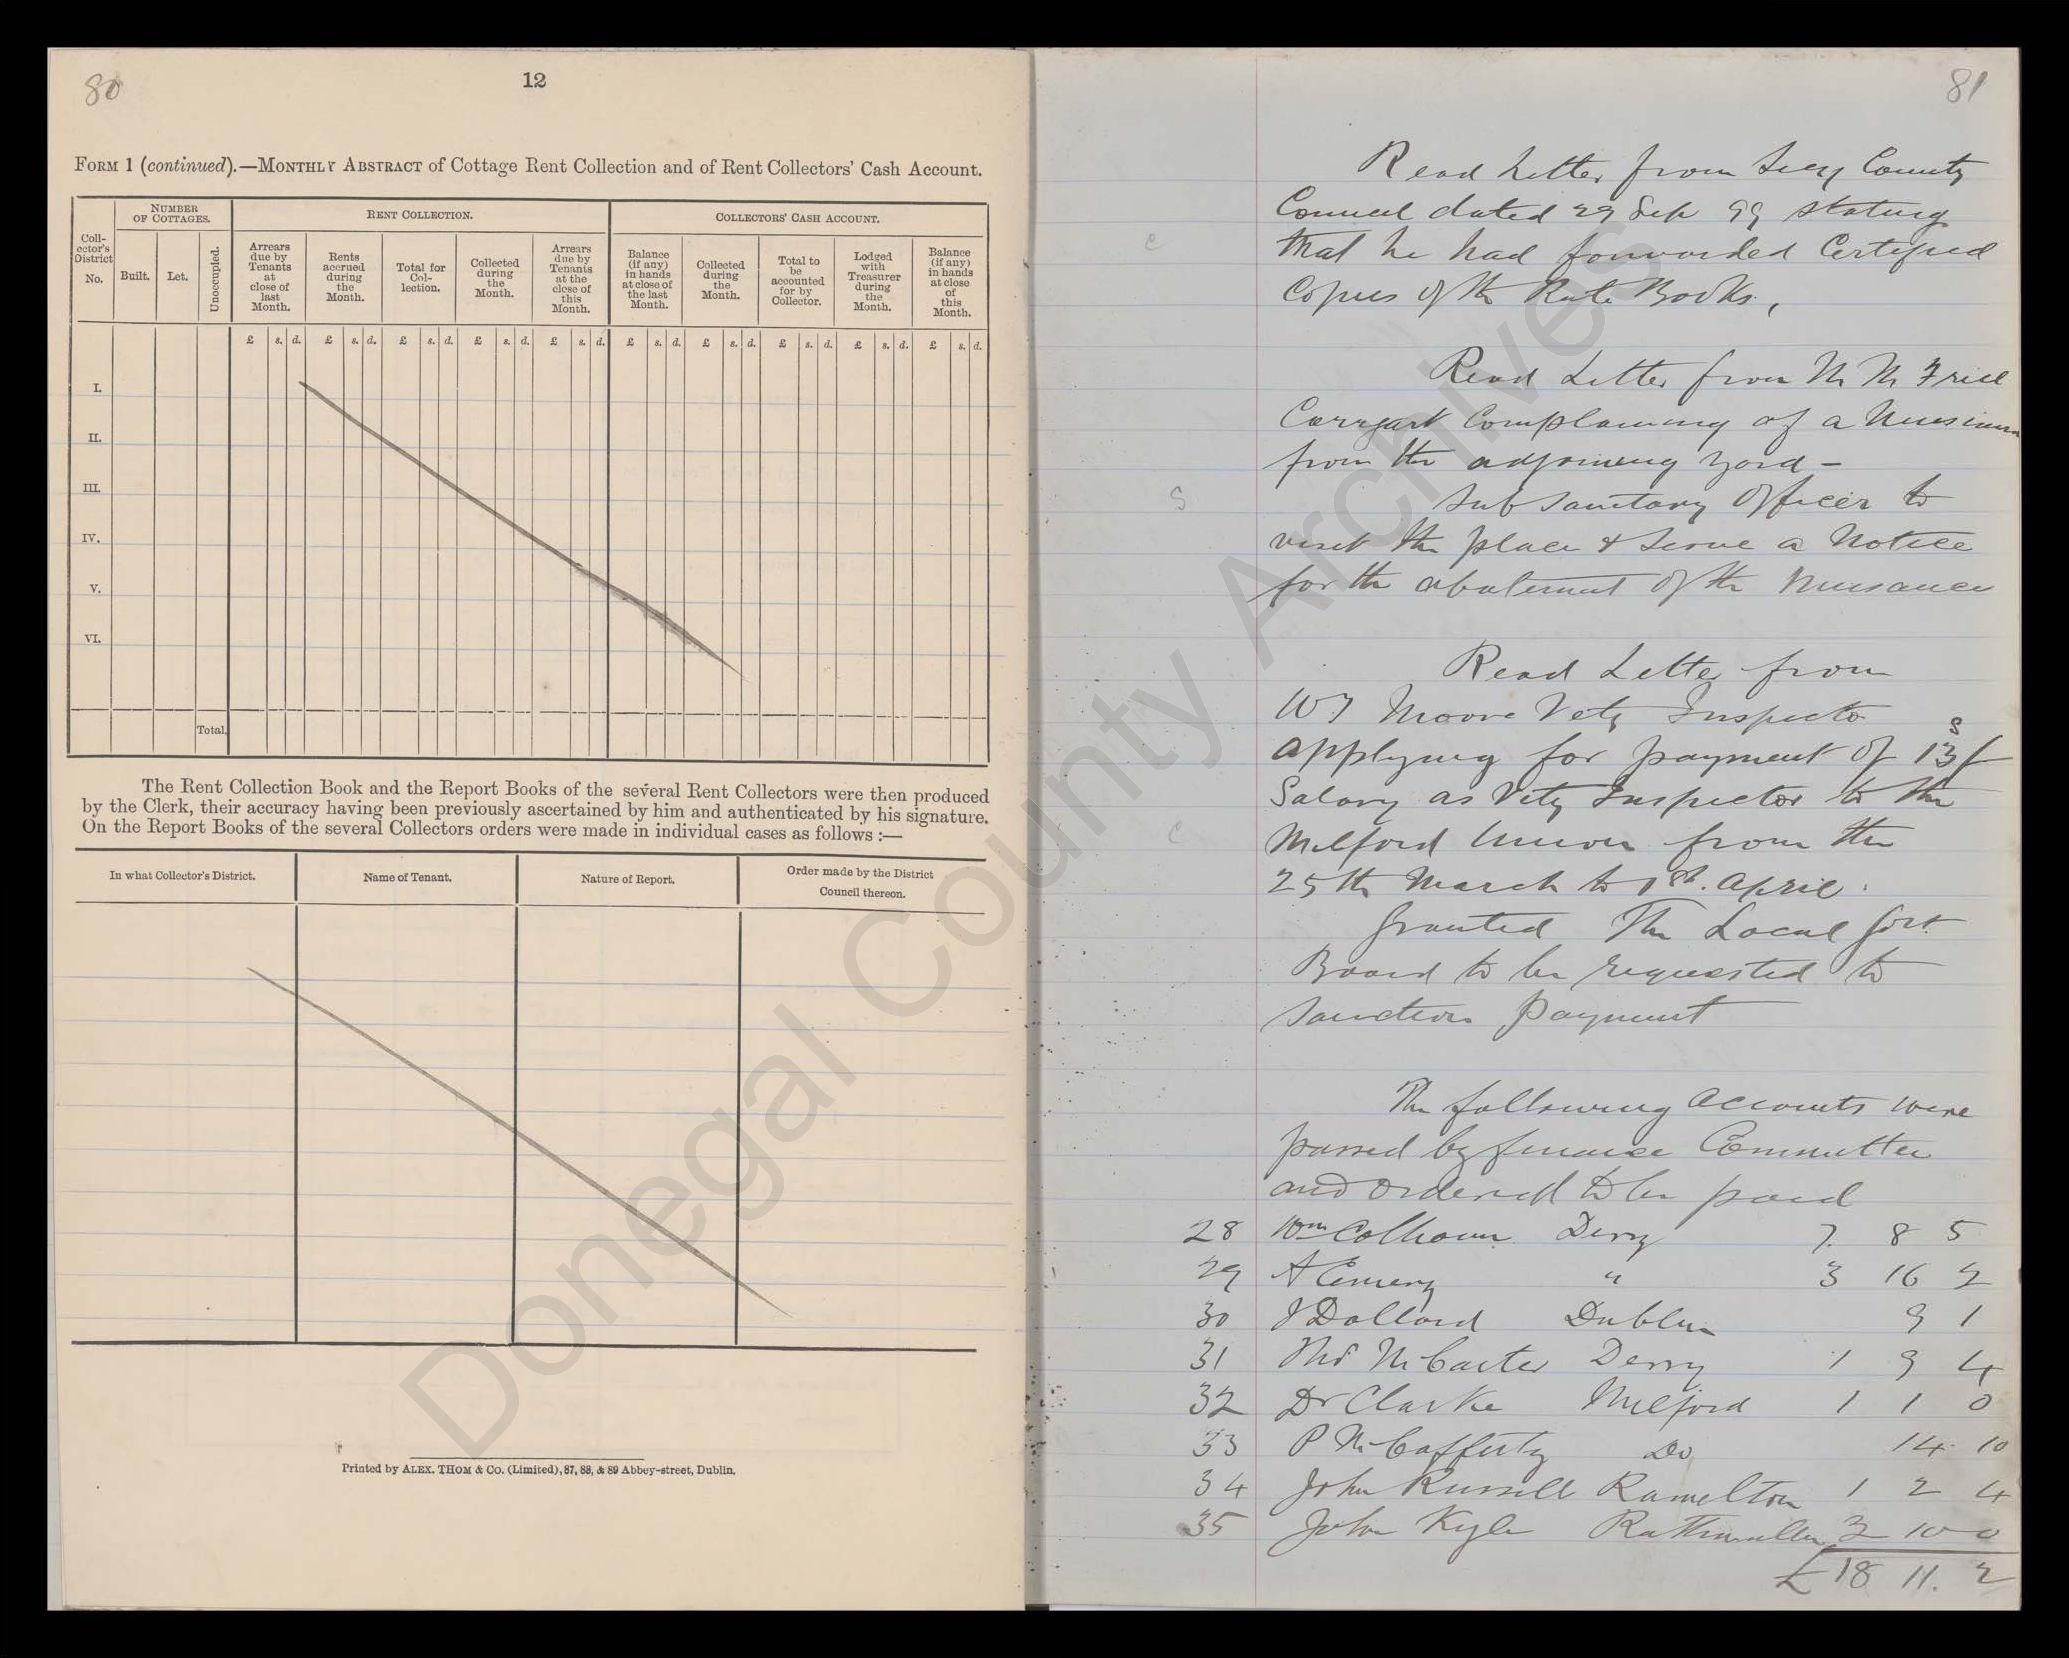 80
12
FORM 1 (continued).—MONTHLY ABSTRACT of Cottage Rent Collection and of Rent Collectors' Cash Account.
Coll-ector's District No.
NUMBER OF COTTAGES.
Built.
Let.
Unoccupied.
RENT COLLECTION.
Arrears due by Tenants at close of last Month.
Rents accrued during the Month.
Total for Col-lection.
Collected during the Month.
Arrears due by Tenants at the close of this Month.
COLLECTORS' CASH ACCOUNT.
Balance (if any) in hands at close of the last Month.
Collected during the Month.
Total to be accounted for by Collector.
Lodged with Treasurer during the Month.
Balance (if any) in hands at close of this Month.
£ s. d. £ s. d. £ s. d. £ s. d. £ s. d. £ s. d. £ s. d. £ s. d. £ s. d. £ s. d.
I.
II.
III.
IV.
V.
VI.
Total,
The Rent Collection Book and the Report Books of the several Rent Collectors were then produced
by the Clerk, their accuracy having been previously ascertained by him and authenticated by his signature.
On the Report Books of the several Collectors orders were made in individual cases as follows :—
In what Collector's District.
Name of Tenant.
Nature of Report.
Order made by the District Council thereon.
Printed by ALEX. THOM & CO. (Limited), 87, 88, & 89 Abbey-street, Dublin.
81
Read Letter from Secy County
Council dated 29 Sep 99 stating
c
that he had forwarded Certified
Copies of the Rate Books.
Read Letter from Mr M Friel
Carrgart Complaining of a Nuisance
from the adjoining yard –
S
Sub Sanitary Officer to
visit the place & serve a Notice
for the abatement of the Nuisance
Read Letter from
WJ Moore Vety Inspector
applying for payment of 13s/
Salary as Vety Inspector to the
c
Milford Union from the
25th March to 1st. April.
Granted The Local Govt
Board to be requested to
sanction payment
The following accounts were
passed by finance Committee
and ordered to be paid
28 Wm Colhoun Derry 7. 8 5
29 A Emery " 3 16 2
30 J Dollard Dublin 9 1
31 Thos McCarter Derry 1 9 4
32 Dr Clarke Milford 1 1 0
33 P McCafferty Do 14 10
34 John Russell Ramelton 1 2 4
35 John Kyle Rathmullen 2 10 0
£18 11. 2
Donegal County Archives